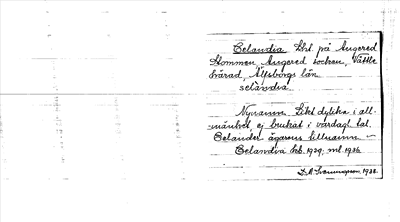 Celandia Lht. på Angered
Stommen, Angered socken, Vättle
härad, Älfsborgs län.
selandia
Nynamn. Likt dylika i all-
mänhet, ej brukat i vardagl. tal.
Celander ägarens tillnamn. –
Celandia feb. 1929, ml. 1936
1938.